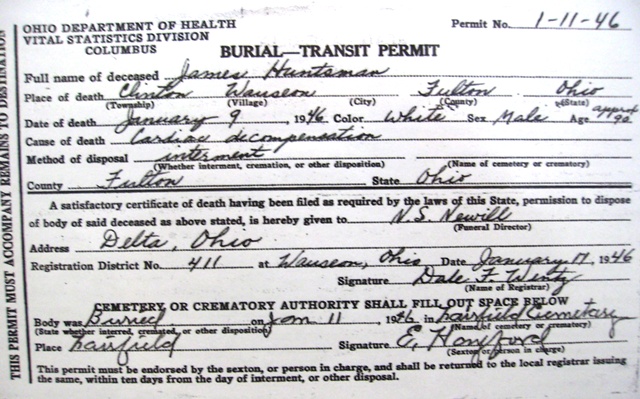 OHIO DEPARTMENT OF HEALTH
VITAL STATISTICS DIVISION
COLUMBUS
Permit No. 1-11-46
BURIAL—TRANSIT PERMIT
Full name of deceased James Huntsman
Place of death Clinton Wauseon Fulton Ohio
(Township) (Village) (City) (County) (State)
Date of death January 9, 1946 Color White Sex Male Age approx 90
Cause of death Cardiac decompensation
Method of disposal interment
(Whether interment, cremation, or other disposition) (Name of cemetery or crematory)
County Fulton State Ohio
A satisfactory certificate of death having been filed as required by the laws of this State, permission to dispose
of body of said deceased as above stated, is hereby given to N.S. Newill
(Funeral Director)
Address Delta, Ohio
Registration District No. 411 at Wauseon, Ohio Date January, 1946
Signature Dale F Wentz
(Name of Registrar)
CEMETERY OR CREMATORY AUTHORITY SHALL FILL OUT SPACE BELOW
Body was Burried on Jan 11 1946 in Fairfield Cemetary
(State whether interred, cremated, or other disposition) (Name of cemetery or crematory)
Place Fairfield Signature E.
(Sexton or person in charge)
This permit must be endorsed by the sexton, or person in charge, and shall be returned to the local registrar issuing
the same, within ten days from day of interment, or other disposal.
THIS PERMIT MUST ACCOMPANY REMAINS TO DESTINATION